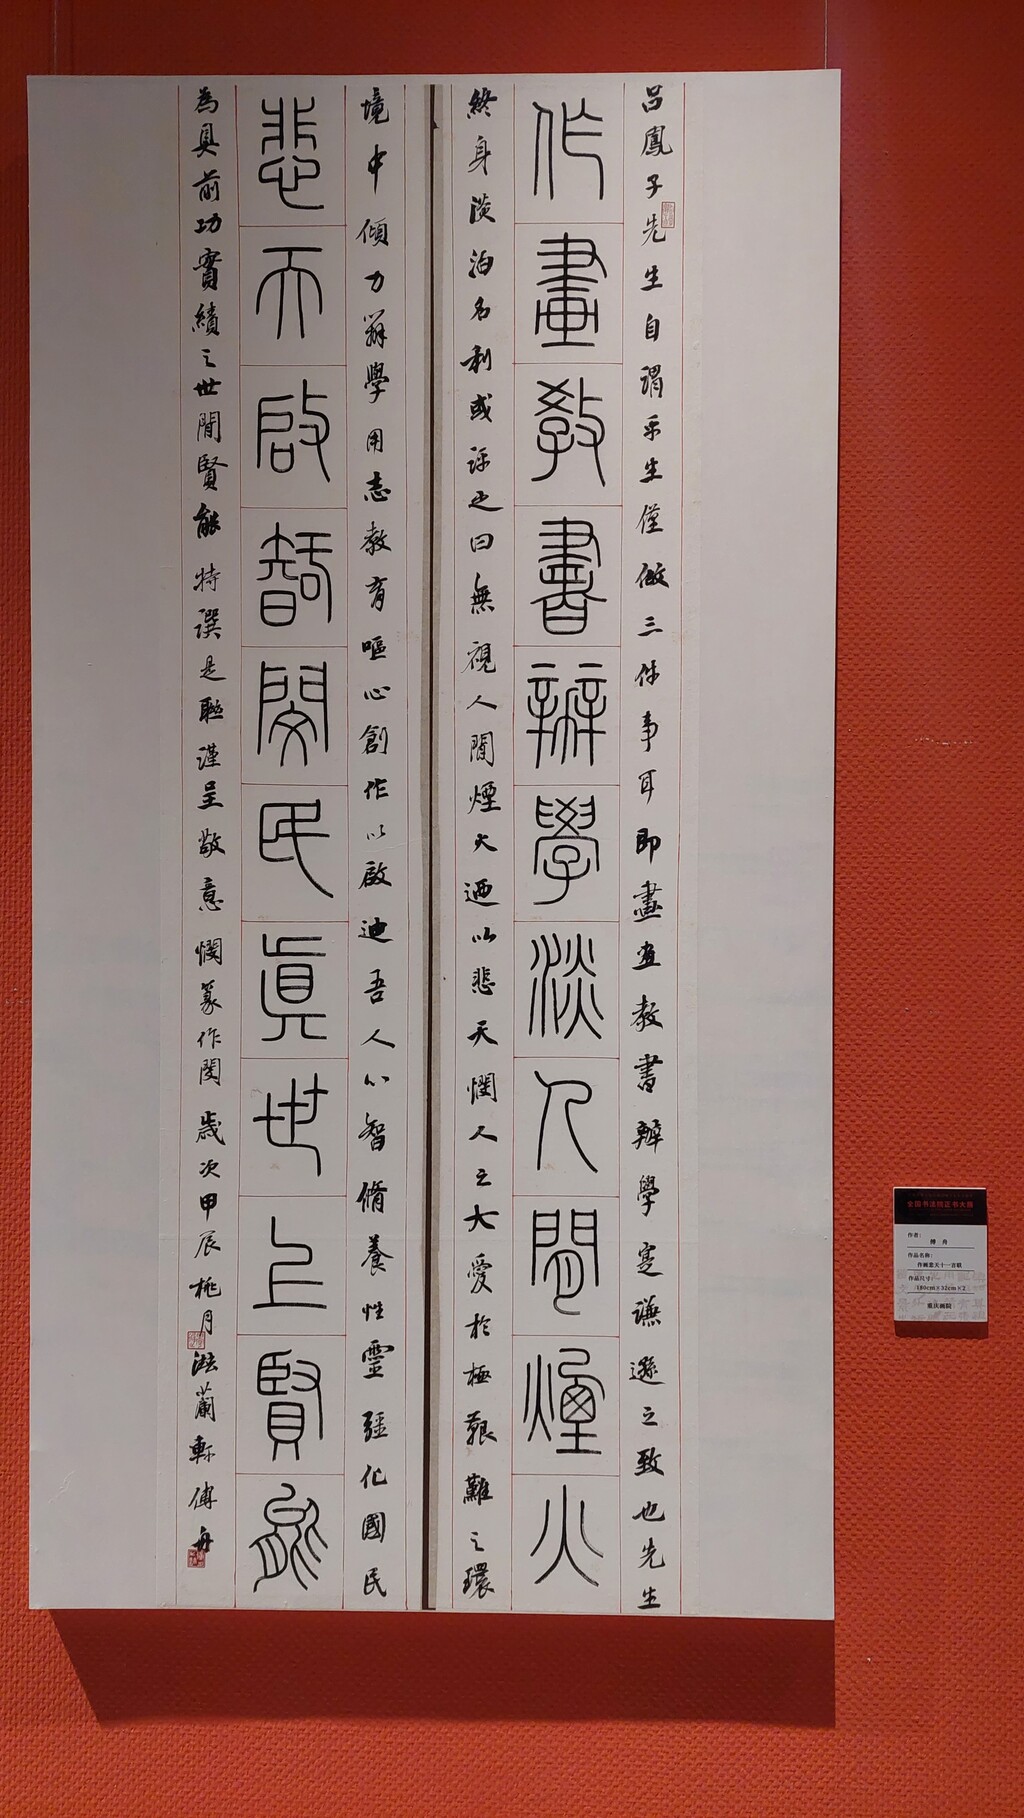 吕鳳子先生自謂平生僅做三件事耳即畫畫教書辦學寔謙遜之致也先生
作畫教書辦學淡人間煙火
終身淡泊名利或評之曰無視人間煙火迺以悲天憫人之大愛於極艱難之環
境中傾力辦學用志教育嘔心創作以啟迪吾人心智脩養性靈強化國民
悲天啟智閔民真世上賢能
為具前功實績之世間賢能特選是聯謹呈敬意憫篆作閔歲次甲辰桃月澂蘭軒傅舟
全国书法院正书大展
作者：
傅 舟
作品名称：
作画悲天十一言联
作品尺寸：
180cm×32cm×2
重庆画院